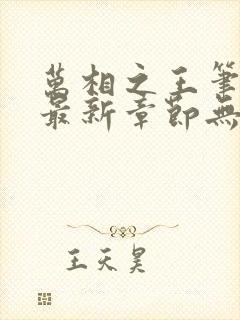 萬相之王筆
最新章節無
王天昊